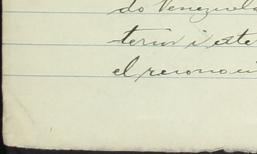 do Venezuela
terin i este
el reconoci